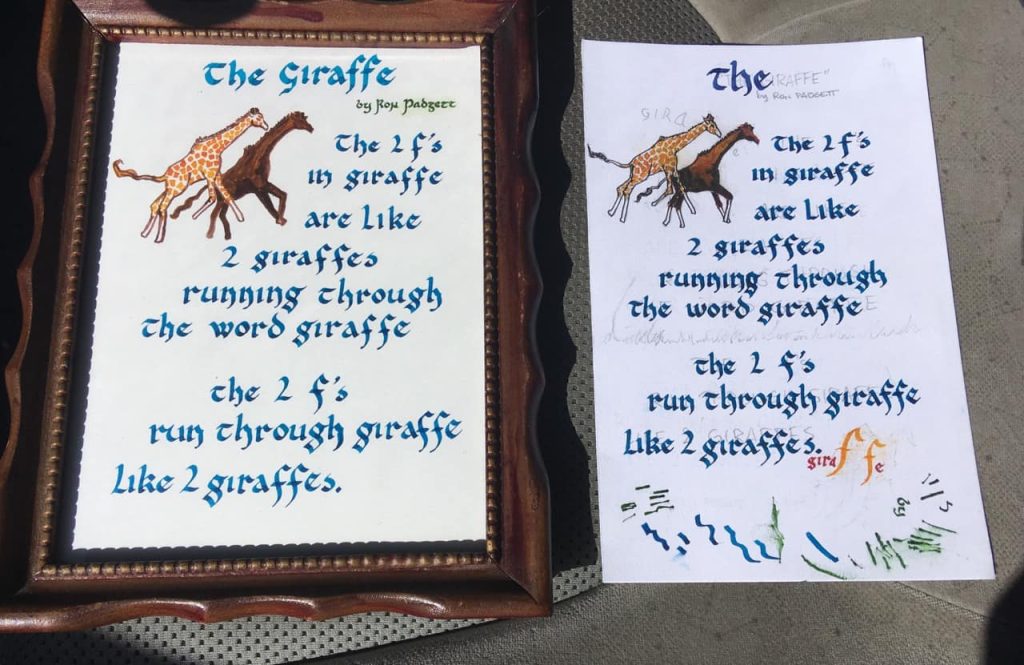 The Giraffe
by Ron Padgett
The 2 f's
in giraffe
are like
2 giraffes
running through
the word giraffe
the 2 f's
run through giraffe
like 2 giraffes.
The IRAFFE"
by RON PADGETT
GIRA
The 2 f's
in giraffe
are like
2 giraffes
running through
the word giraffe
the 2 f's
run through giraffe
like 2 giraffes.
giraffe
by